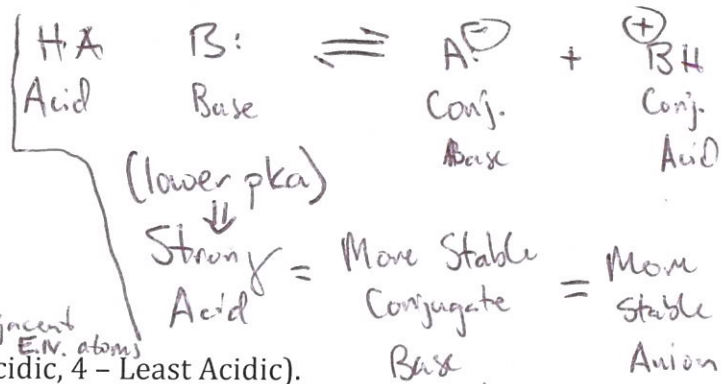 H-A B: ⇌ A:⊖ + ⊕BH
Acid Base Conj. Base Conj. Acid
(lower pka)
⇓
Strong Acid = More Stable Conjugate Base = More Stable Anion
E.N. atoms
cidic, 4 – Least Acidic).